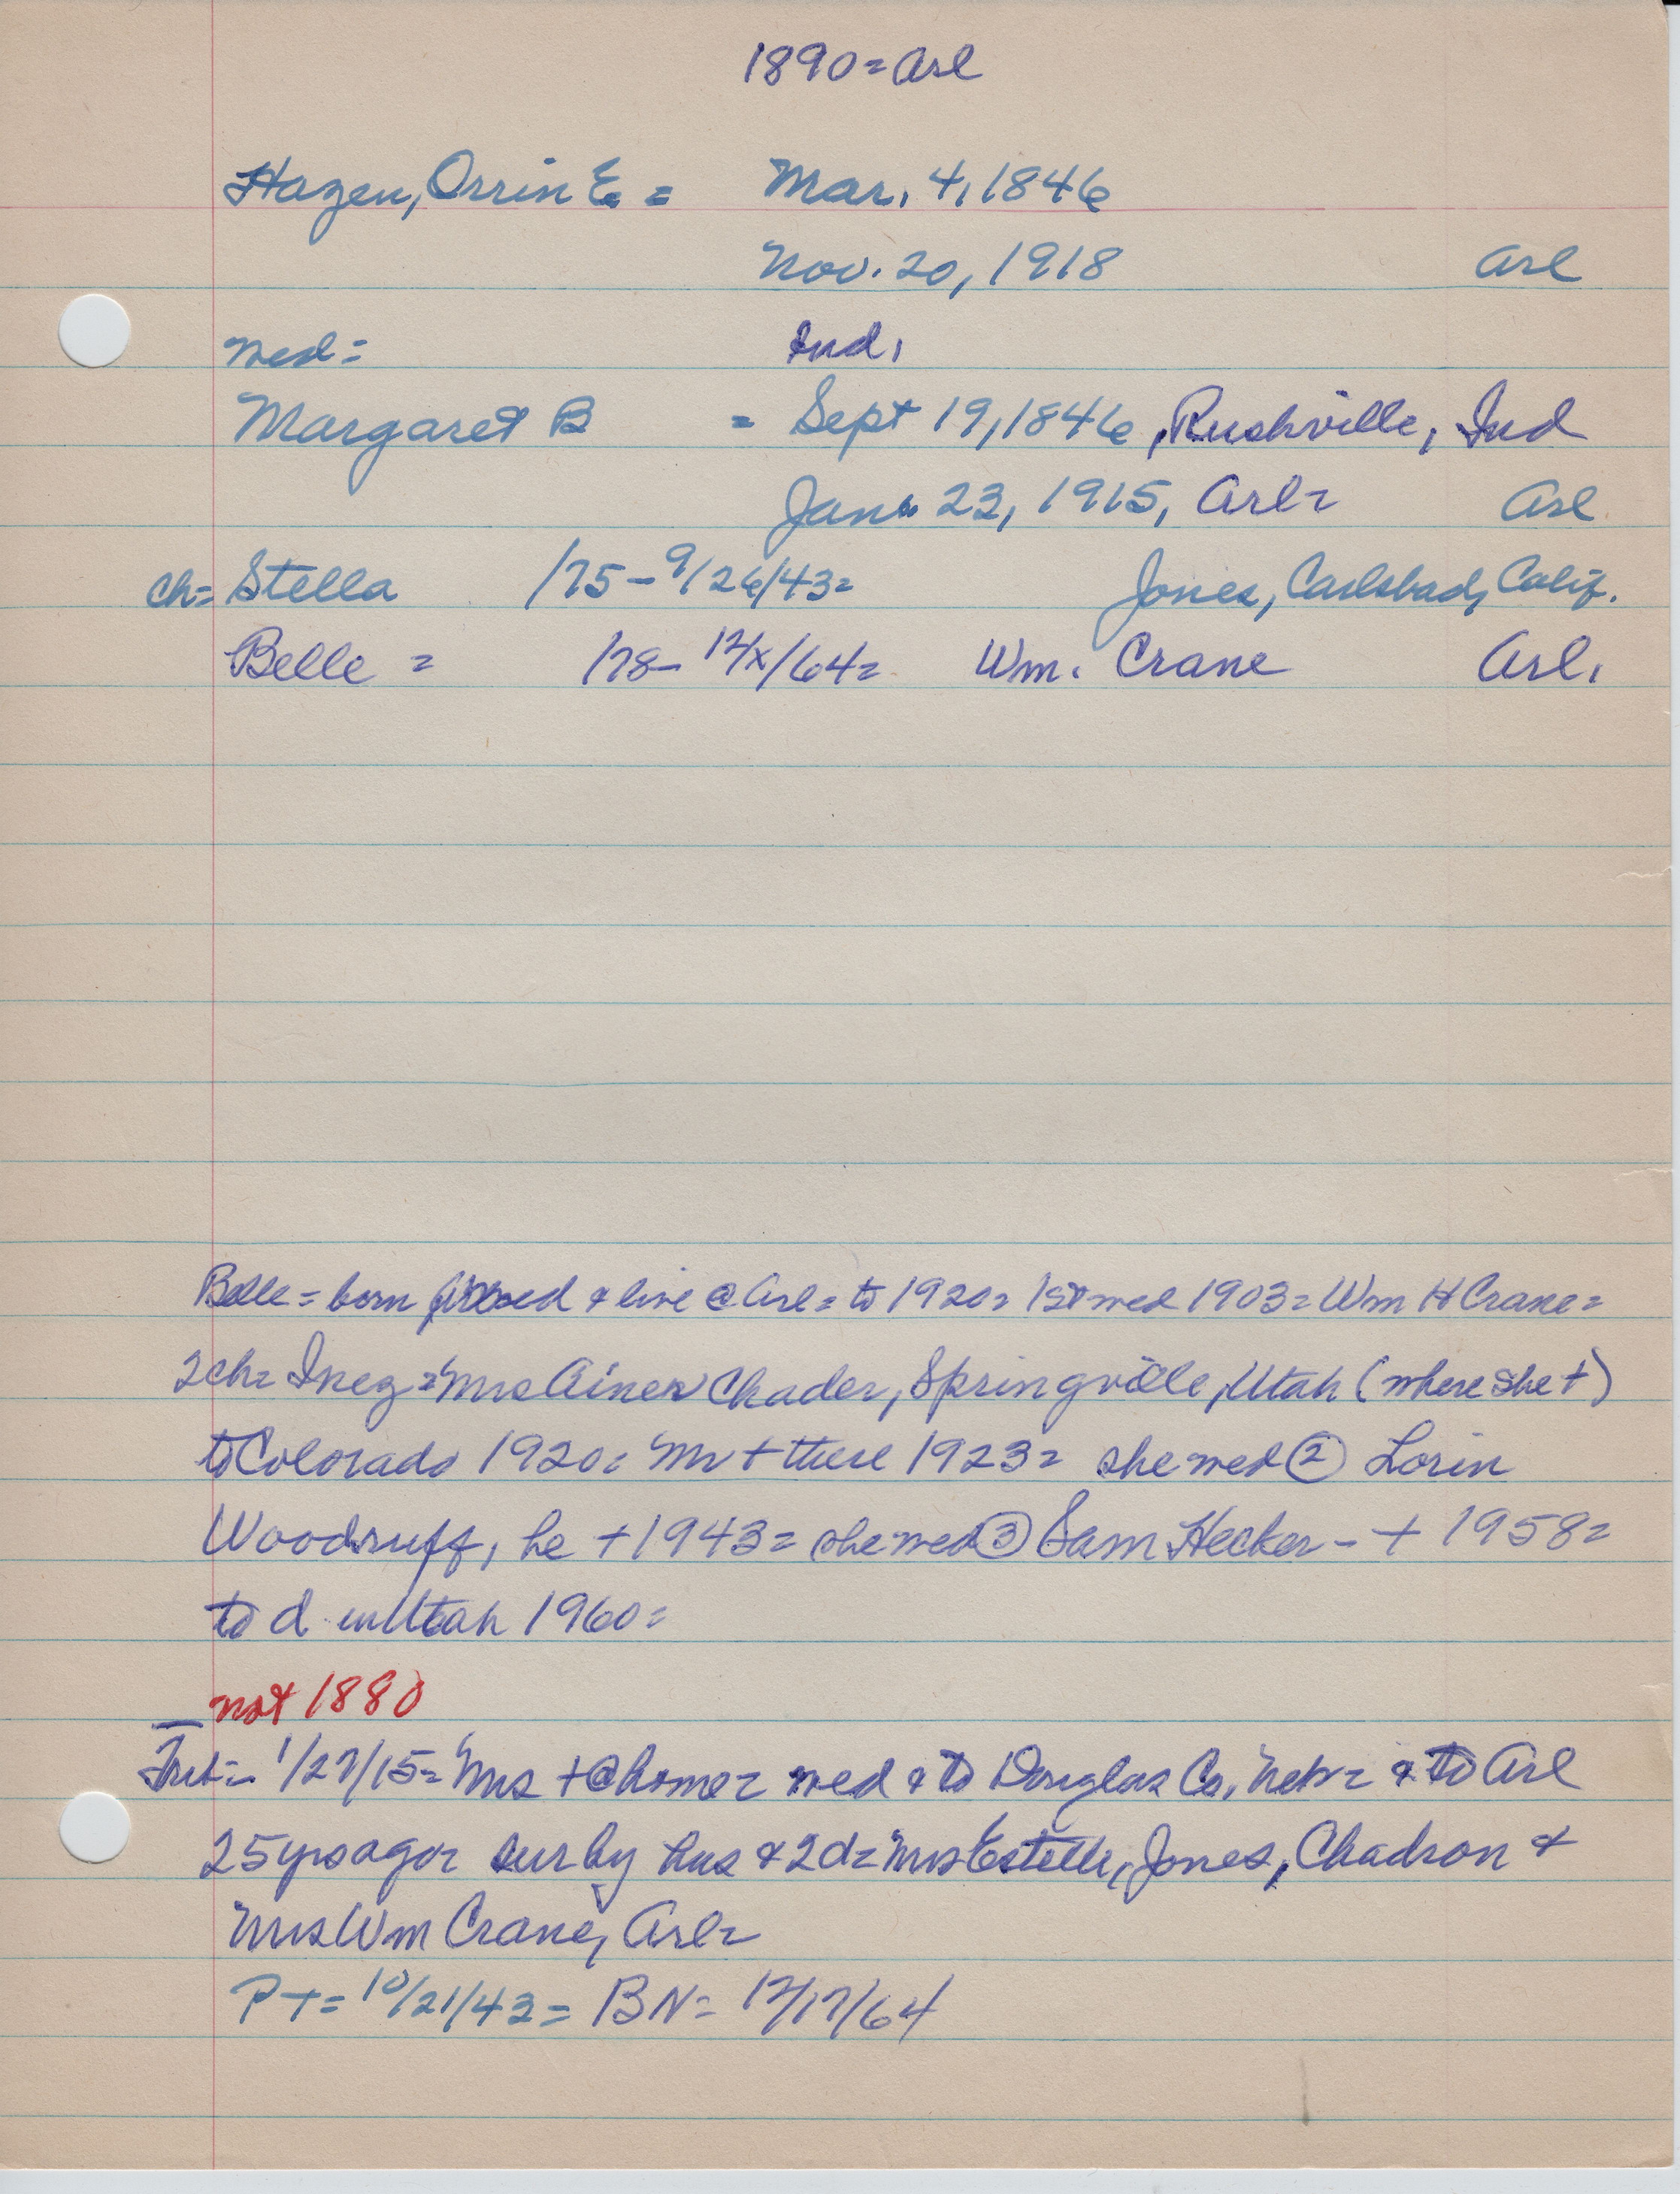 1890 = Arl
Hazen, Orrin E. = Mar. 4, 1846
Nov. 20, 1918 Arl
wed = Ind.
Margaret B = Sept 19, 1846, Rushville, Ind
Jan. 23, 1915, Arl = Arl
ch = Stella /75 - 9/26/43 = Jones, Carlsbad, Calif.
Belle = /78 - 12/x/64 = Wm. Crane Arl.
Belle = born & live @ Arl = to 1920 = 1st wed 1903 = Wm H Crane =
2 ch = Inez = Mrs Ainer Chader, Springville, Utah (where she +)
to Colorado 1920 = Mr + there 1923 = she wed ② Lorin
Woodruff, he + 1943 = she wed ③ Sam Hecker - + 1958 =
to d in Utah 1960 =
not 1880
1/27/15 = Mrs + @ home = wed & to Douglas Co, Nebr = & to Arl
25 yrs ago = sur by hus & 2 d = Mrs Estelle, Jones, Chadron &
Mrs Wm Crane, Arl =
PT = 10/21/43 = BN = 12/17/64